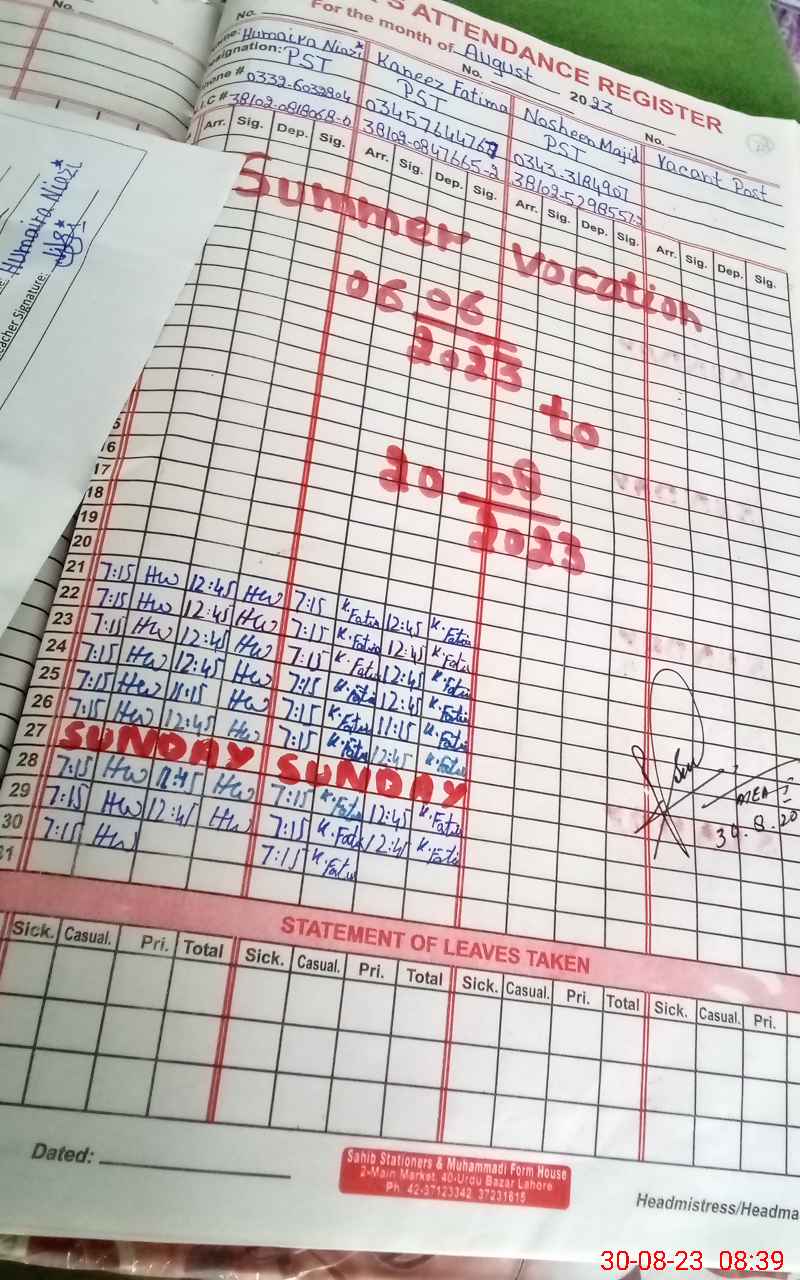 No.
No.
'S ATTENDANCE REGISTER
For the month of August 2023
No.
No.
Humaira Niazi Kaneez Fatima Nosheen Majid Vacant Post
esignation: PST PST PST
hone # 0339-6039804 03457644767 0343-3184907
.C # 38102-0818068-0 38102-0847665-2
Arr. Sig. Dep. Sig. Arr. Sig. Dep. Sig. Arr. Sig. Dep. Sig. Arr. Sig. Dep. Sig.
Summer vocation
06 06
2023
to
20 08
2023
Humaira Niazi
eacher Signature:
16
17
18
19
20
21 7:15 HW 12:45 HW 7:15 K.Fatia 12:45 K.Fatia
22 7:15 HW 12:45 HW 7:15 K.Fatia 12:45 K.Fatia
23 7:15 HW 12:45 HW 7:15 K.Fatia 12:45 K.Fatia
24 7:15 HW 12:45 HW 7:15 K.Fatia 12:45 K.Fatia
25 7:15 HW 11:15 HW 7:15 K.Fatia 11:15 K.Fatia
26 7:15 HW 12:45 HW 7:15 K.Fatia 12:45 K.Fatia
27 SUNDAY SUNDAY
28 7:15 HW 12:45 HW 7:15 K.Fatia 12:45 K.Fatia
29 7:15 HW 12:45 HW 7:15 K.Fatia 12:45 K.Fatia
30 7:15 HW 7:15 K.Fatia
31
MEA
30.8.20
STATEMENT OF LEAVES TAKEN
Sick. Casual. Pri. Total Sick. Casual. Pri. Total Sick. Casual. Pri. Total Sick. Casual. Pri.
Dated:
Sahib Stationers & Muhammadi Form House
2-Main Market, 40-Urdu Bazar Lahore
Ph: 42-37123342 37231615
Headmistress/Headma
30-08-23 08:39